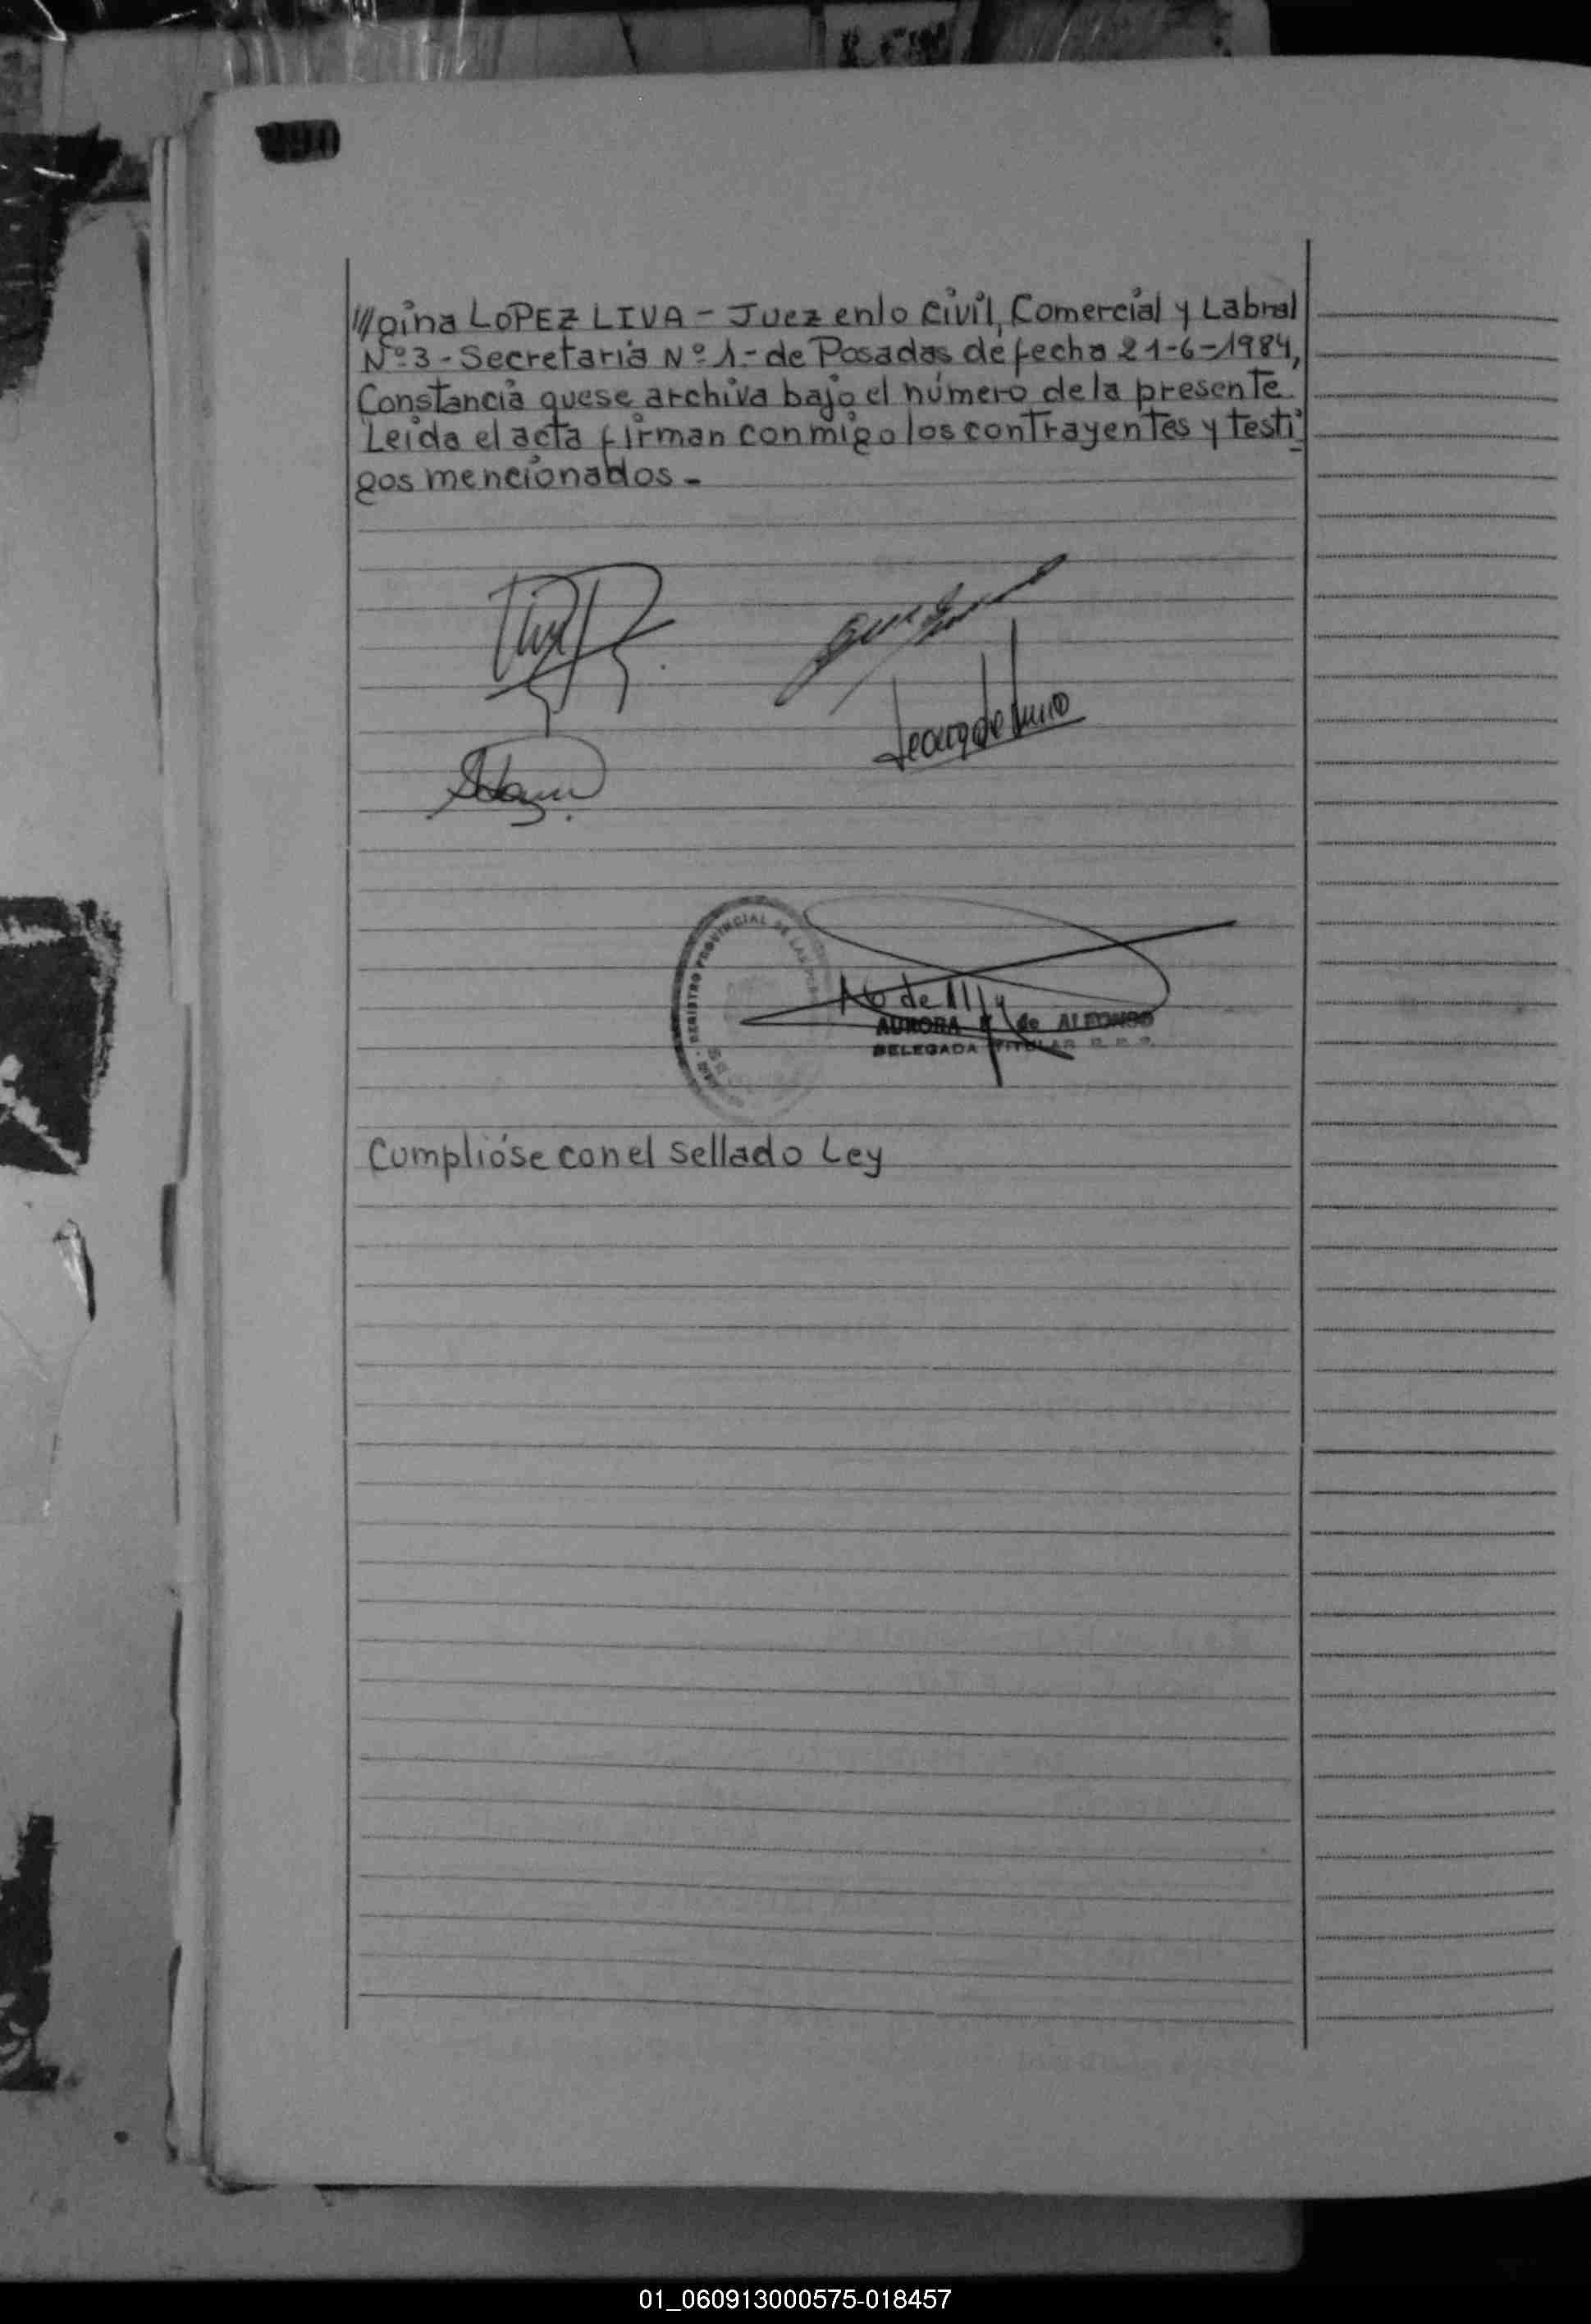 ///gina LOPEZ LIVA - Juez en lo Civil, Comercial y Labral
Nº 3 - Secretaria Nº 1.- de Posadas de fecha 21-6-1984,
Constancia que se archiva bajo el número de la presente.
Leida el acta firman conmigo los contrayentes y testi
gos mencionados -
REGISTRO PROVINCIAL DE LAS
AURORA de ALFONSO
DELEGADA TITULAR R. P. P.
Cumplióse con el sellado Ley
01_060913000575-018457